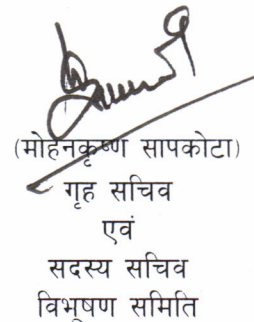 (मोहनकृष्ण सापकोटा)
गृह सचिव
एवं
सदस्य सचिव
विभूषण समिति